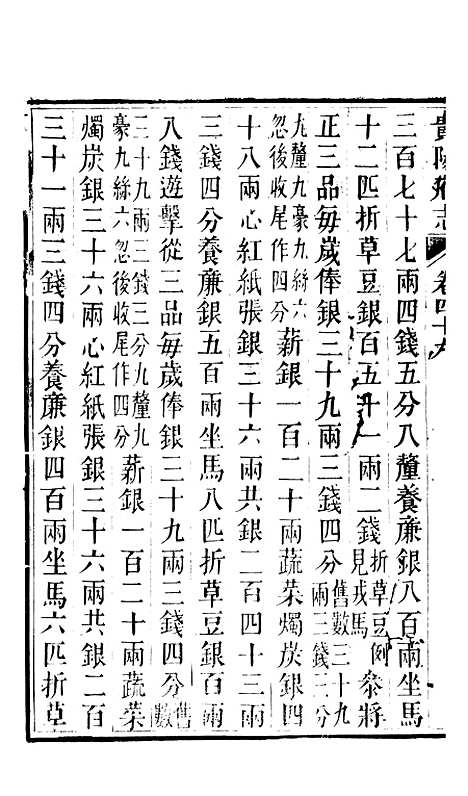 貴陽府志 卷四十六
三百七十七兩四錢五分八釐養廉銀八百兩坐馬
十二匹折草豆銀百五十一兩二錢折草豆例見戎馬叅將
正三品每歲俸銀三十九兩三錢四分舊數三十九兩三錢三分
九釐九豪九絲六忽後收尾作四分薪銀一百二十兩蔬菜燭炭銀四
十八兩心紅紙張銀三十六兩共銀二百四十三兩
三錢四分養廉銀五百兩坐馬八匹折草豆銀百兩
八錢遊擊從三品每歲俸銀三十九兩三錢四分舊數
三十九兩三錢三分九釐九豪九絲六忽後收尾作四分薪銀一百二十兩蔬菜
燭炭銀三十六兩心紅紙張銀三十六兩共銀二百
三十一兩三錢四分養廉銀四百兩坐馬六匹折草